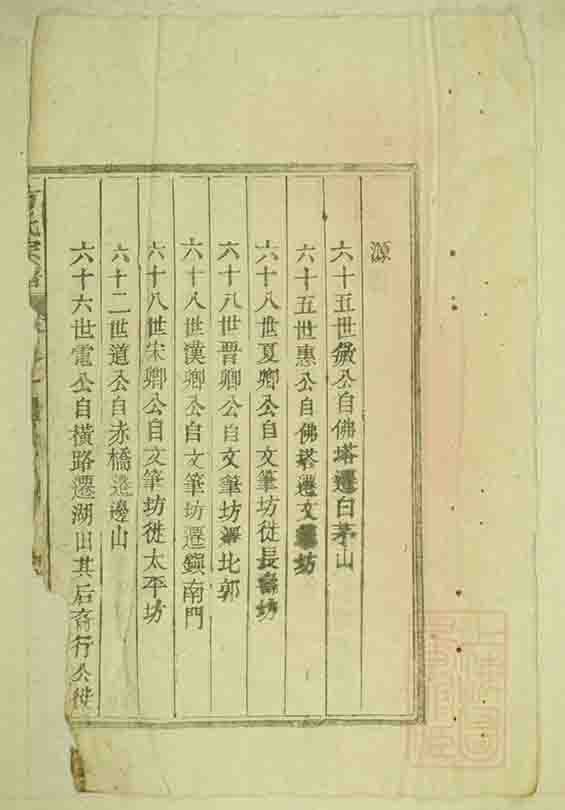 源
六十五世公自佛塔遷白茅山
六十五世惠公自佛塔遷文筆坊
六十八世夏卿公自文筆坊徙長壽坊
六十八世晋卿公自文筆坊遷北郭
六十八世漢卿公自文筆坊遷鎮南門
六十八世宋卿公自文筆坊徙太平坊
六十二世道公自赤橋遷邊山
六十六世電公自橫路遷湖田其后裔行公徙
氏宗譜